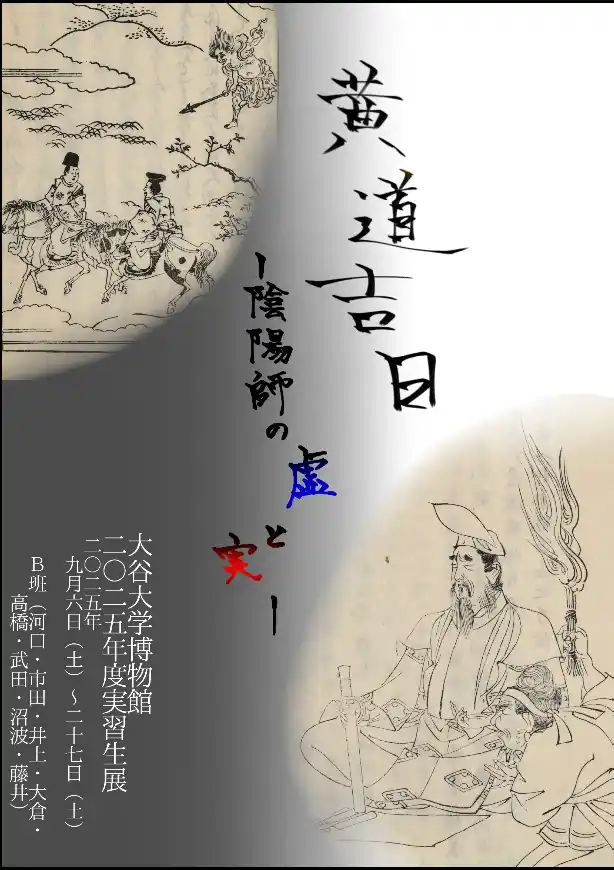 黄道吉日
-陰陽師の虚と実-
大谷大学博物館
二〇二五年度実習生展
二〇二五年
九月六日（土）～二十七日（土）
B班（河口・市田・井上・大倉・
高橋・武田・沼波・藤井）